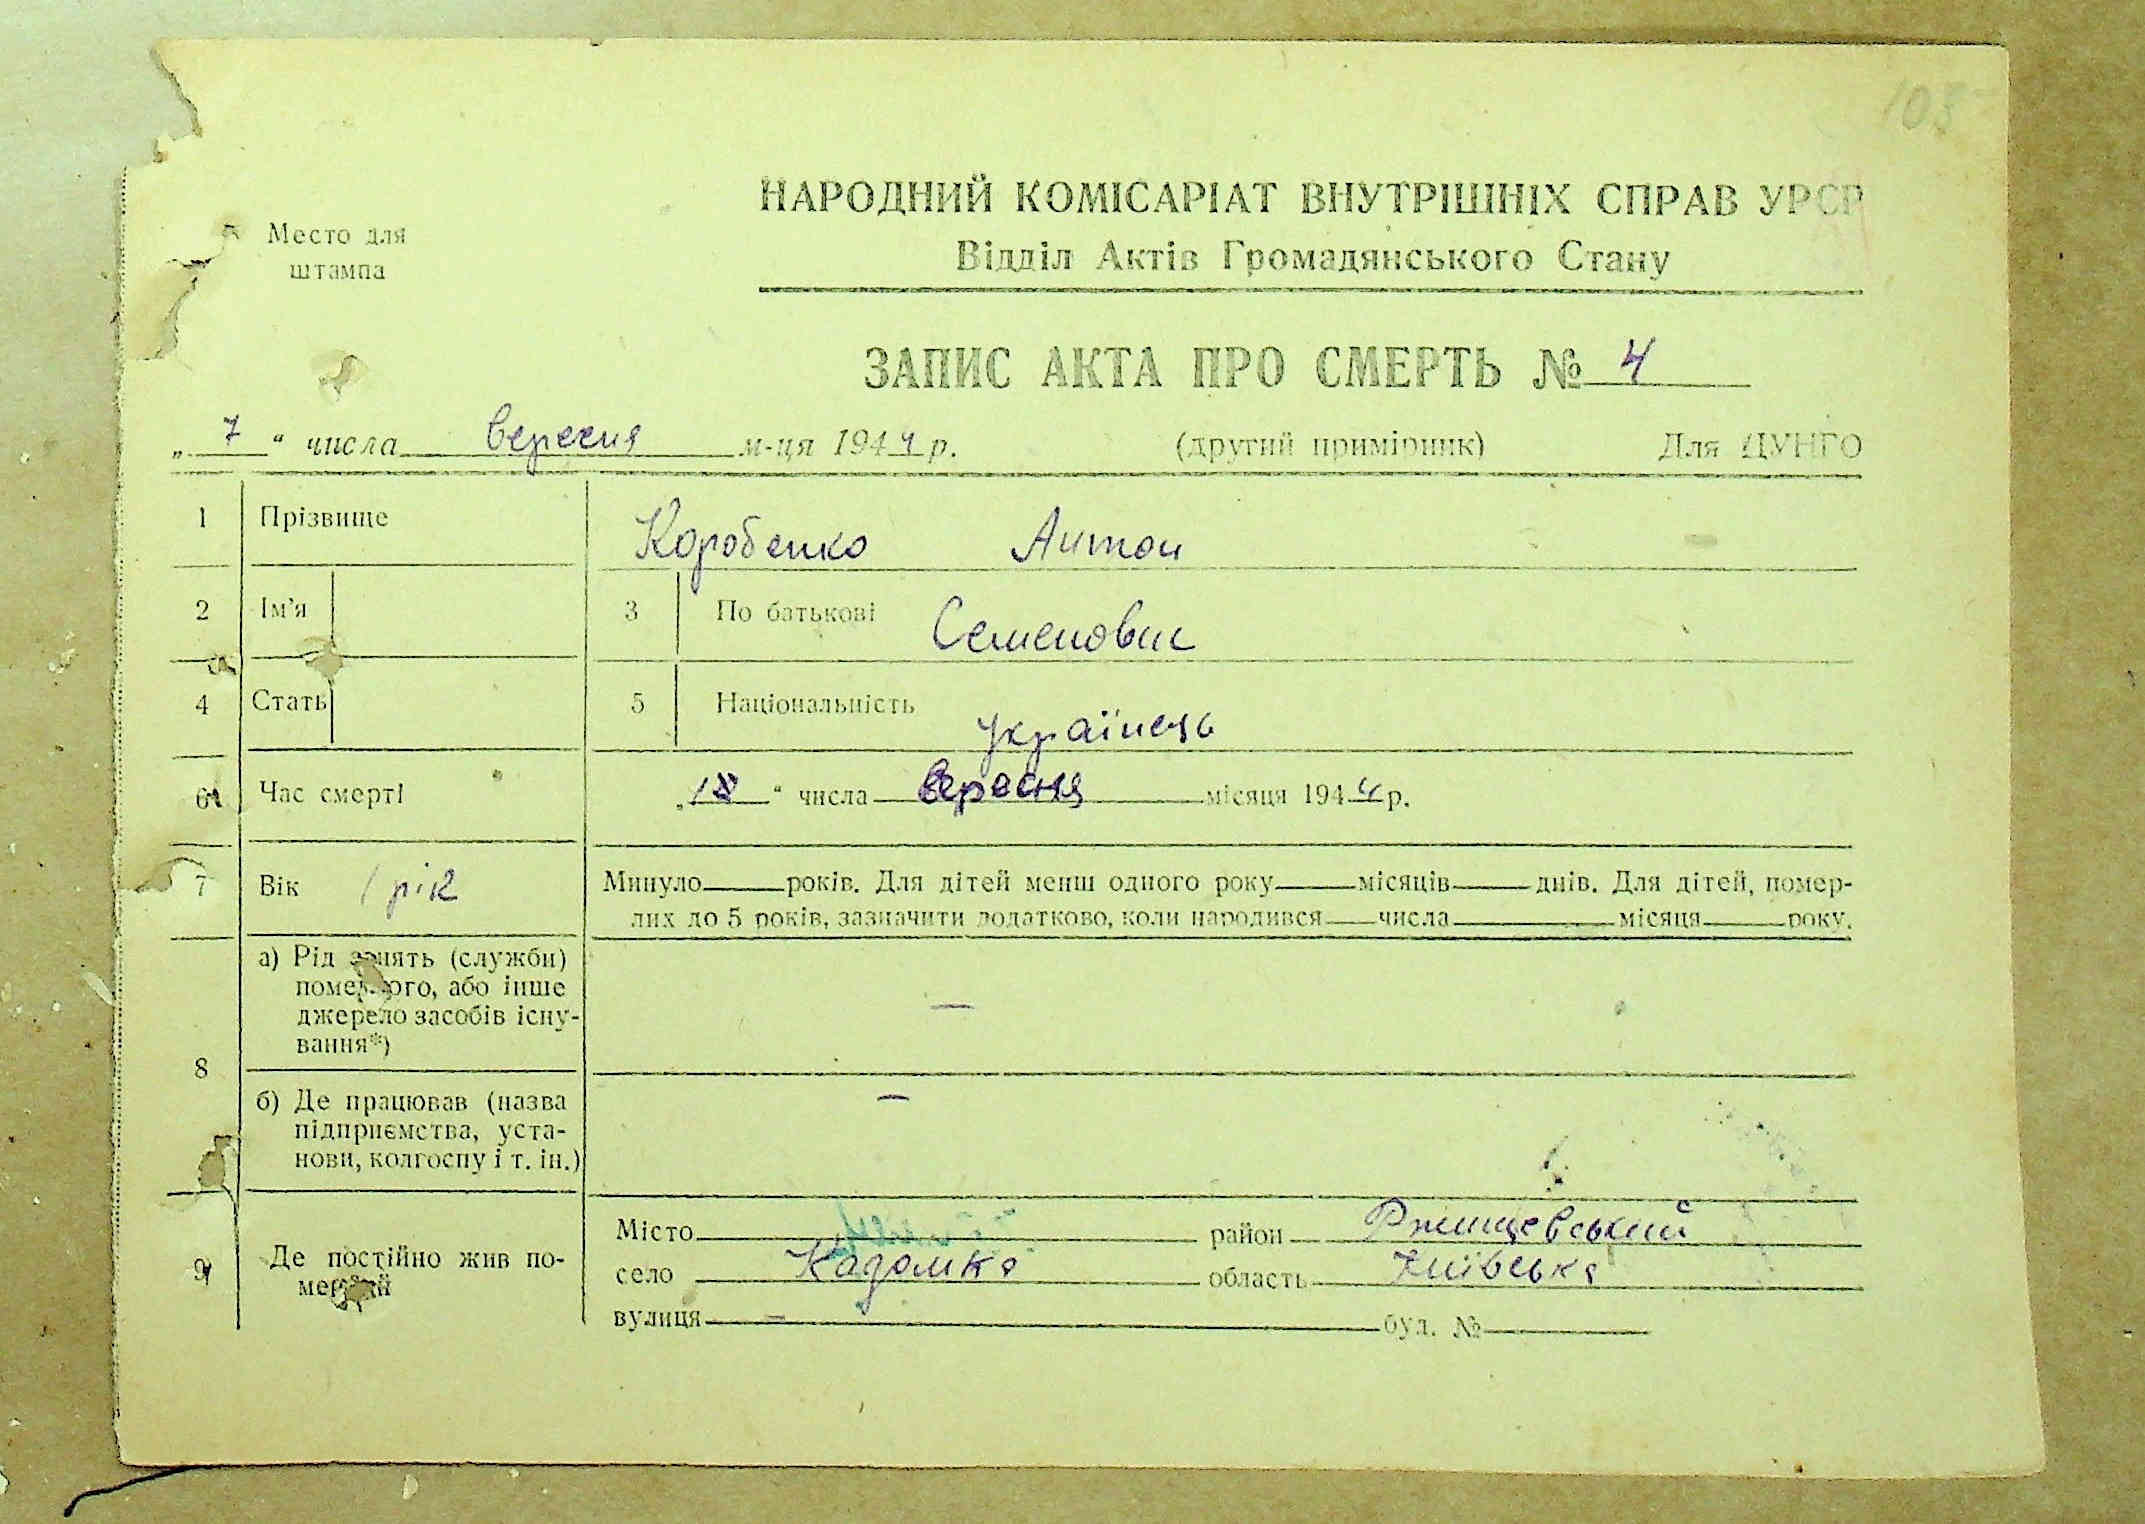 105
НАРОДНИЙ КОМІСАРІАТ ВНУТРІШНІХ СПРАВ УРСР
Место для
штампа
Відділ Актів Громадянського Стану
ЗАПИС АКТА ПРО СМЕРТЬ № 4
„ 7 “ числа вересня м-ця 1944 р. (другий примірник) Для ЦУНГО
1 Прізвище Коробенко Антон
2 Ім'я 3 По батькові Семенович
4 Стать 5 Національність українець
6 Час смерті „18“ числа вересня місяця 1944 р.
7 Вік 1 рік Минуло років. Для дітей менш одного року місяців днів. Для дітей, помер-
лих до 5 років, зазначити додатково, коли народився числа місяця року.
8 а) Рід занять (служби)
померлого, або інше
джерело засобів існу-
вання*)
—
б) Де працював (назва
підприємства, уста-
нови, колгоспу і т. ін.)
—
9 Де постійно жив по-
мерлий
Місто район Ржищевський
село Кадомка область Київська
вулиця — буд. №